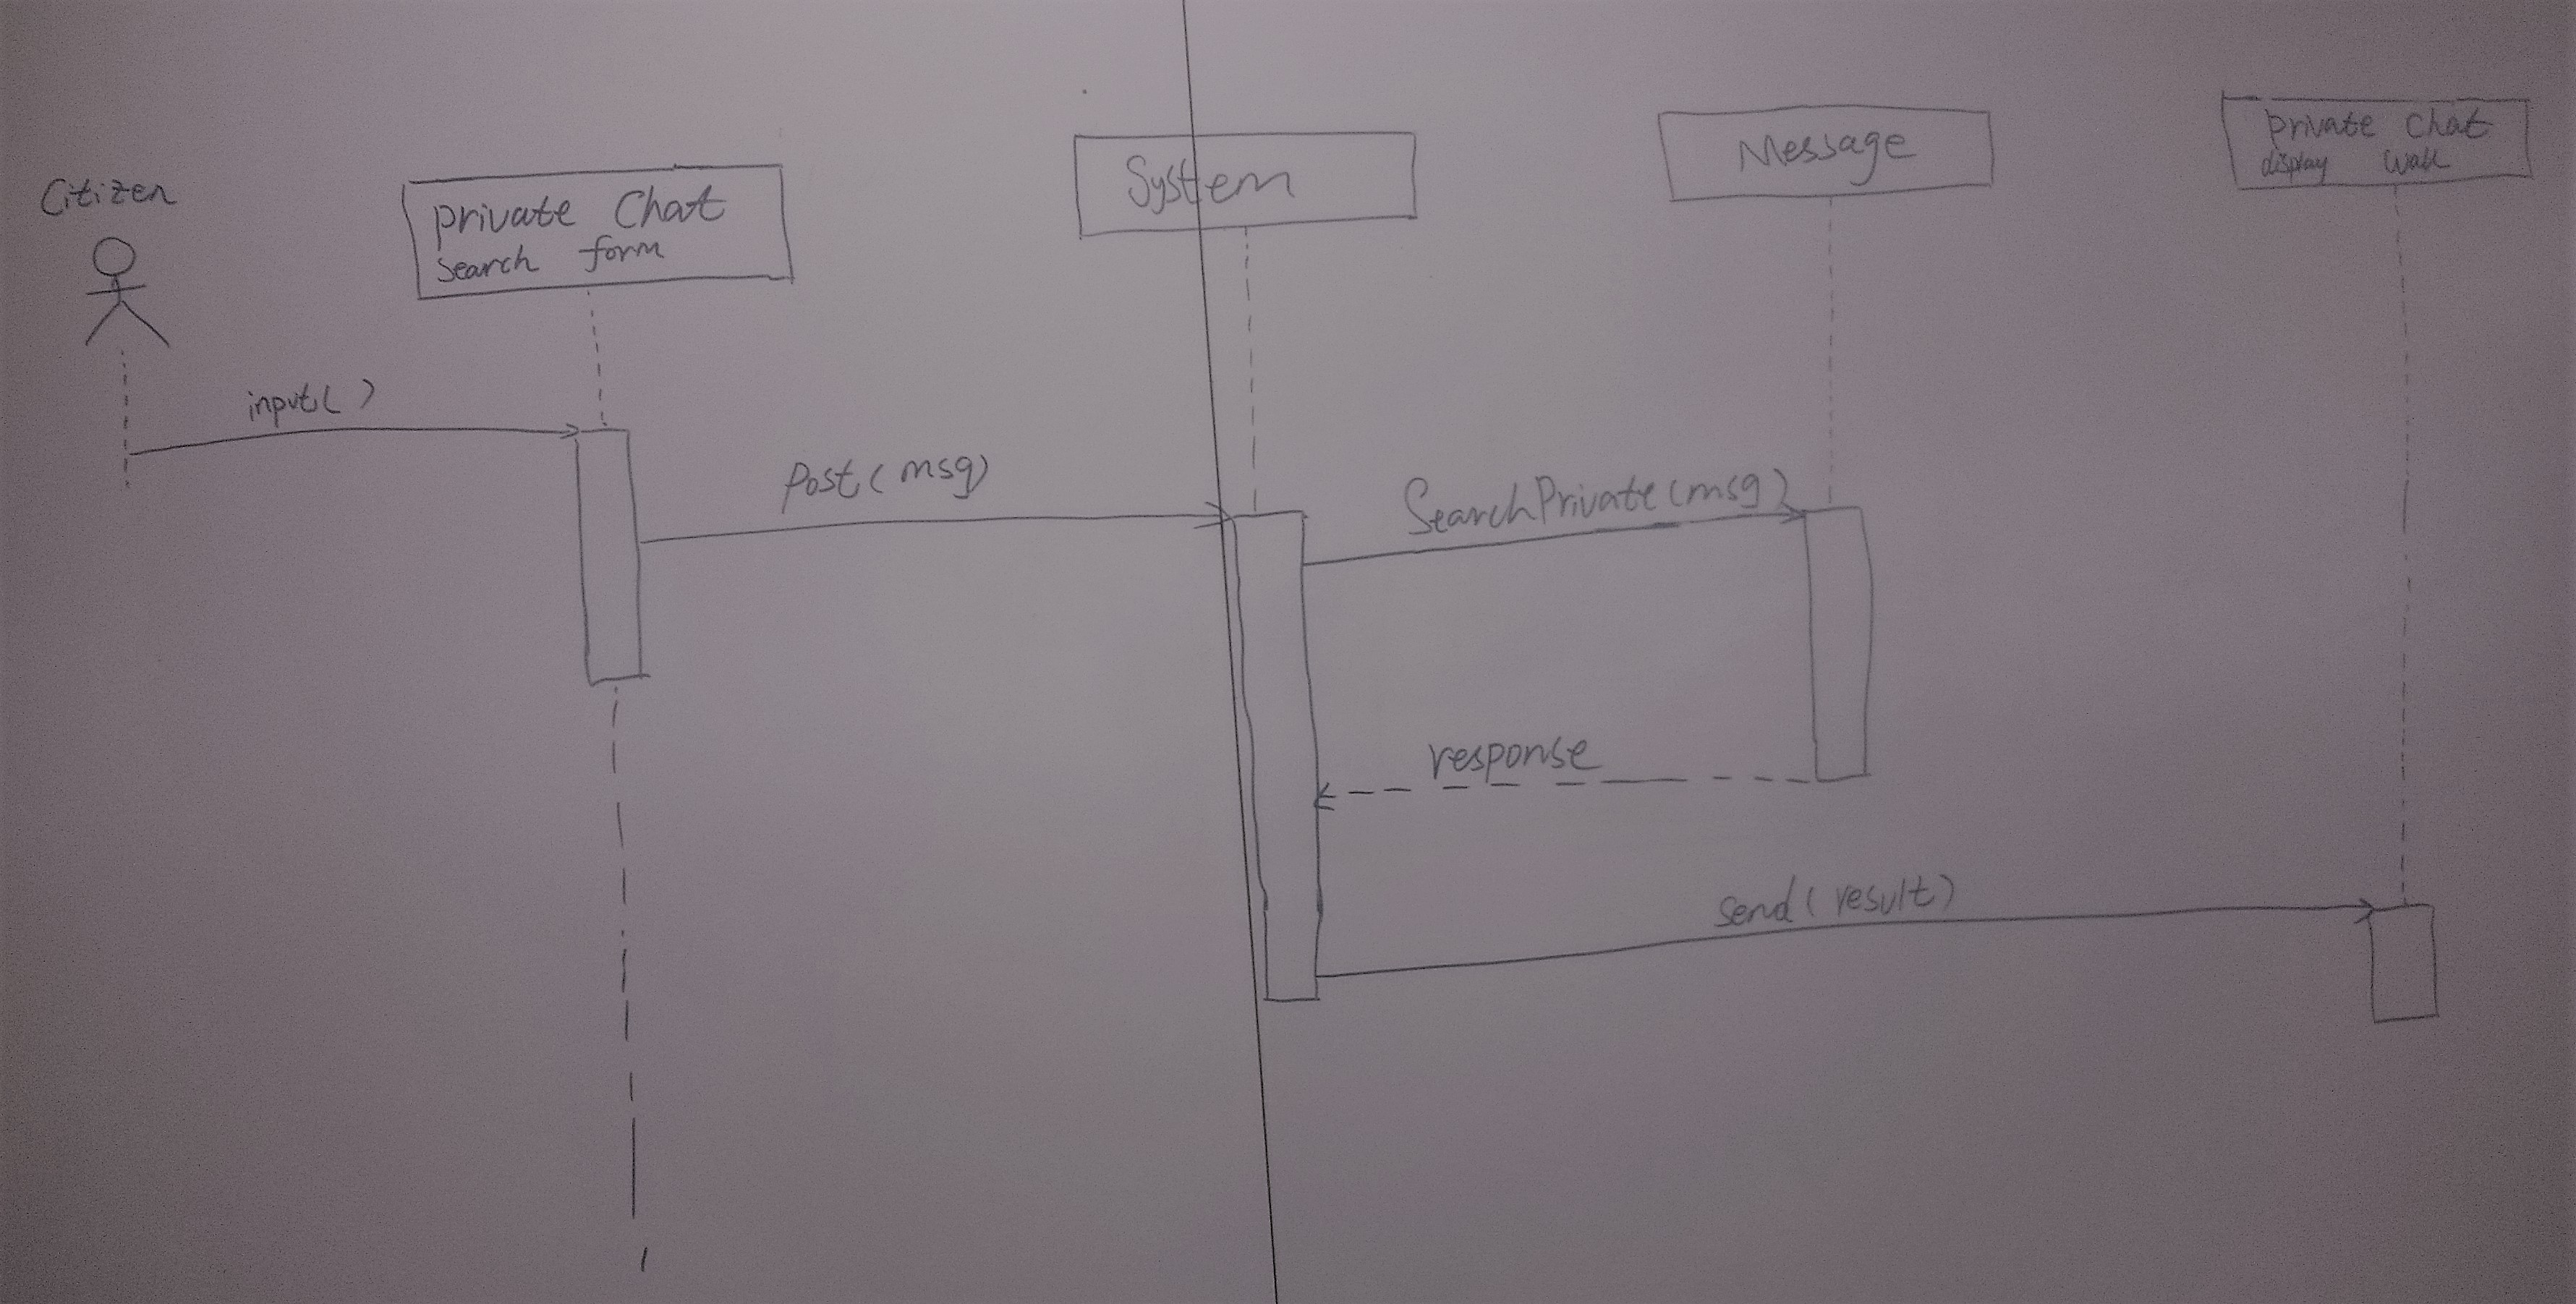 Citizen
private Chat
search form
System
Message
private chat
display wall
input( )
Post(msg)
SearchPrivate(msg)
response
send(result)